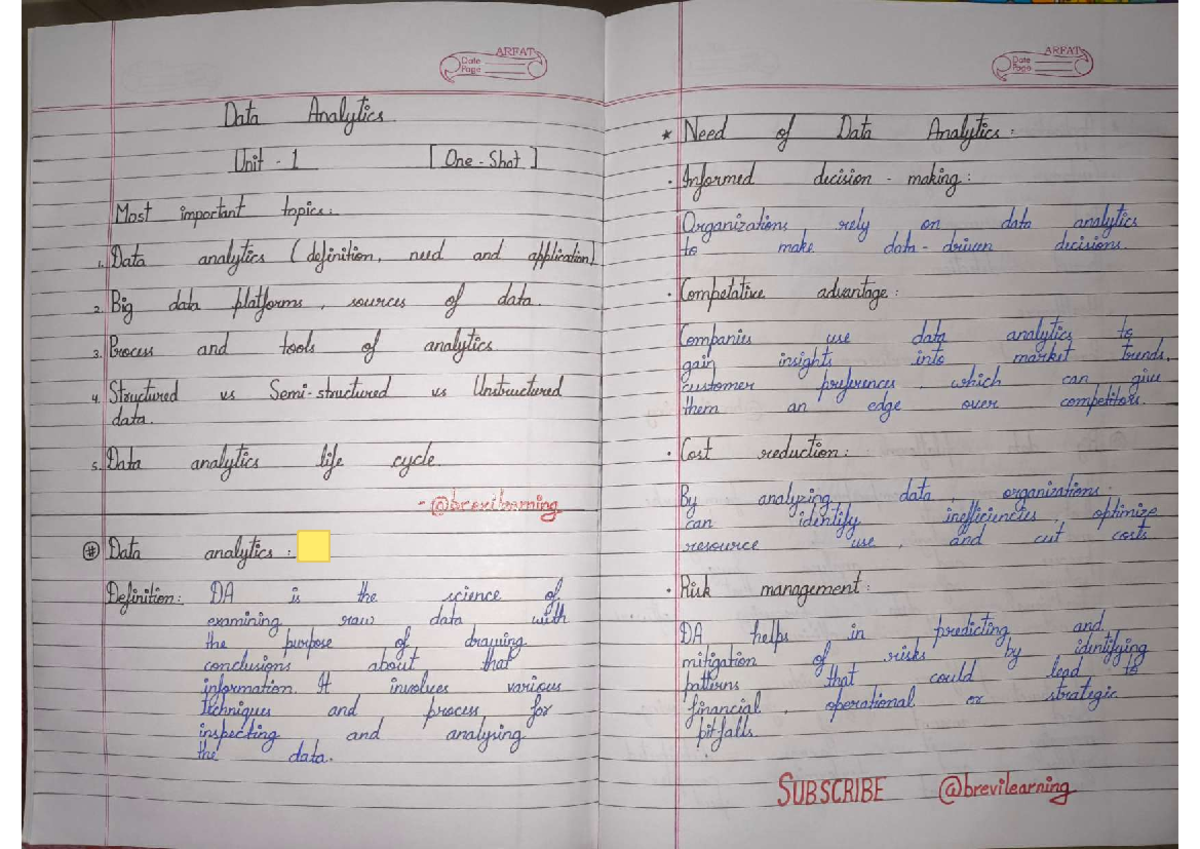 ARFAT
Date
Page
Data Analytics
Unit - 1 [ One - Shot ]
Most important topics:
1. Data analytics ( definition, need and application)
2. Big data platforms , sources of data.
3. Process and tools of analytics
4. Structured vs Semi-structured vs Unstructured
data.
5. Data analytics life cycle.
- @brevilearning
# Data analytics :
Definition: DA is the science of
examining raw data with
the purpose of drawing
conclusions about that
information. It involves various
techniques and process for
inspecting and analysing
the data.
ARFAT
Date
Page
* Need of Data Analytics :
· Informed decision - making :
Organizations rely on data analytics
to make data - driven decisions.
· Competative advantage :
Companies use data analytics to
gain insights into market trends,
customer preferences , which can give
them an edge over competitors.
· Cost reduction :
By analyzing data , organizations
can identify inefficiencies , optimize
resource use , and cut costs
· Risk management :
DA helps in predicting and
mitigation of risks by identifying
patterns that could lead to
financial , operational or strategic
pitfalls.
SUBSCRIBE @brevilearning